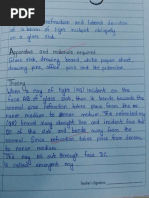 refraction and lateral deviation
of a beam of light incident obliquely
on a glass slab
Apparatus and materials required
Glass slab, drawing board, white paper sheet,
drawing pins, office pins and the protractor
Theory
When a ray of light incident on the
face AB of glass slab, then it bends towards the
normal since refraction takes place from the
rarer medium to denser medium. This refracted ray
travel along straight line and incident face DC
of the slab and bends away from the
normal. Since refraction takes place from denser
to rarer medium.
The ray out through face DC
is called emergent ray
Teacher's Signature